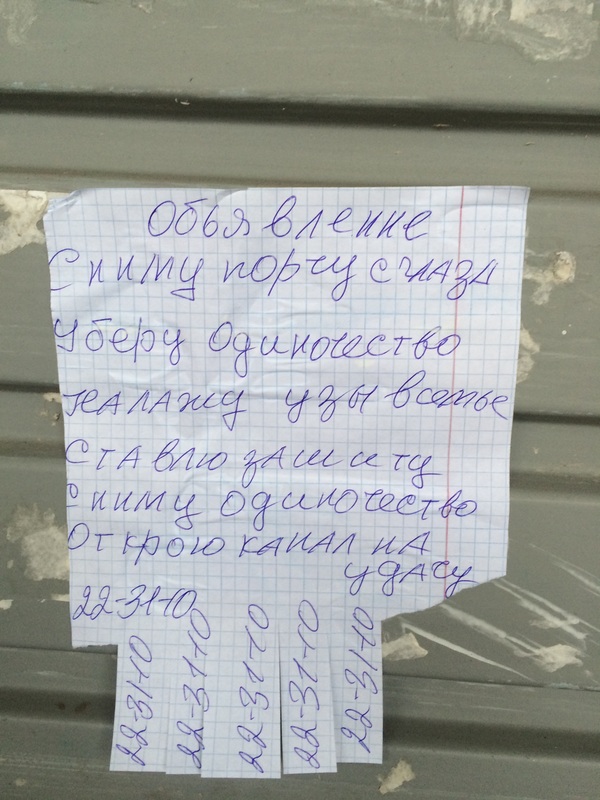 Обьявление
Сниму порчу сглаза
Уберу одиночество
налажу узы всемье
Ставлю зашиту
Сниму одиночество
Открою канал на
удачу
22-31-10
22-31-10
22-31-10
22-31-10
22-31-10
22-31-10